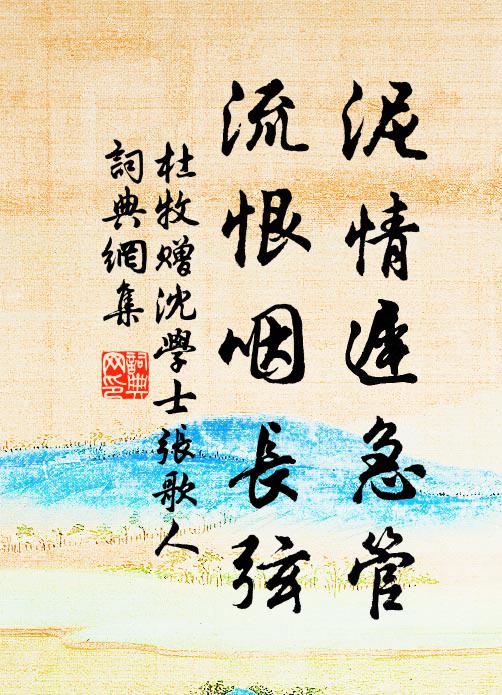 泥情遲急管
流恨咽長弦
杜牧贈沈學士張歌人
詞典網集
詞典
网印